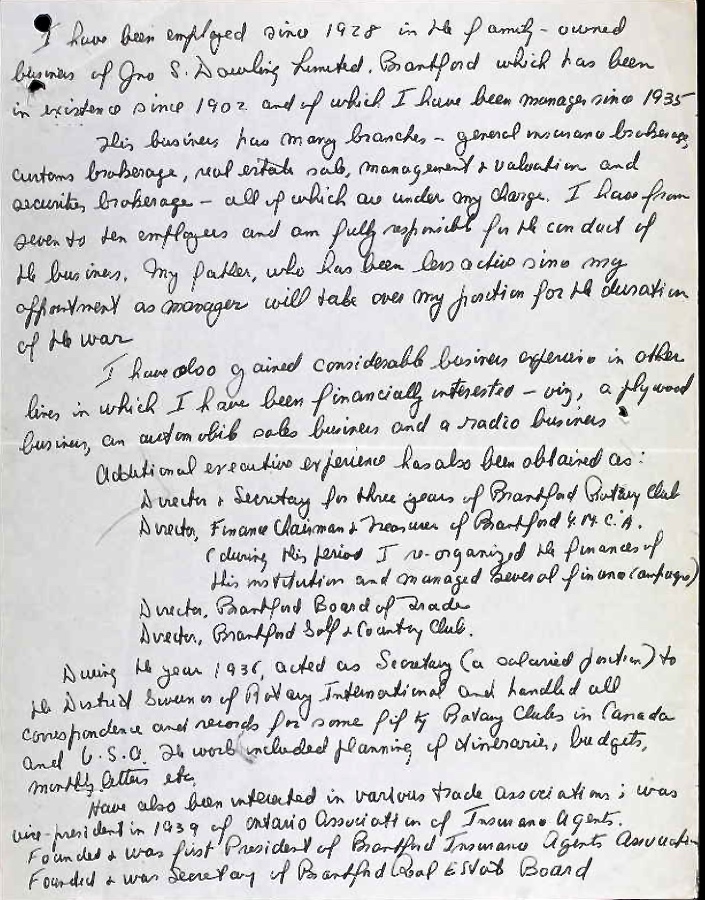 I have been employed since 1928 in the family-owned
business of Jno S. Dowling Limited, Brantford which has been
in existence since 1902 and of which I have been manager since 1935
This business has many branches - general insurance brokerage,
customs brokerage, real estate sale, management & valuation and
securities brokerage - all of which are under my charge. I have from
seven to ten employees and am fully responsible for the conduct of
the business. My father, who has been less active since my
appointment as manager will take over my position for the duration
of the war
I have also gained considerable business experience in other
lines in which I have been financially interested - viz, a plywood
business, an automobile sales business and a radio business
Additional executive experience has also been obtained as:
Director & Secretary for three years of Brantford Rotary Club
Director, Finance Chairman & Treasurer of Brantford Y.M.C.A.
(during this period I re-organized the finances of
this institution and managed several finance campaigns)
Director, Brantford Board of Trade
Director, Brantford Golf & Country Club.
During the year 1936, acted as Secretary (a salaried position) to
the District Governor of Rotary International and handled all
correspondence and records for some fifty Rotary Clubs in Canada
and U.S.A. The work included planning of itineraries, budgets,
monthly letters etc.
Have also been interested in various trade associations; was
vice-president in 1939 of Ontario Association of Insurance Agents.
Founded & was first President of Brantford Insurance Agents Association
Founded & was Secretary of Brantford Real Estate Board